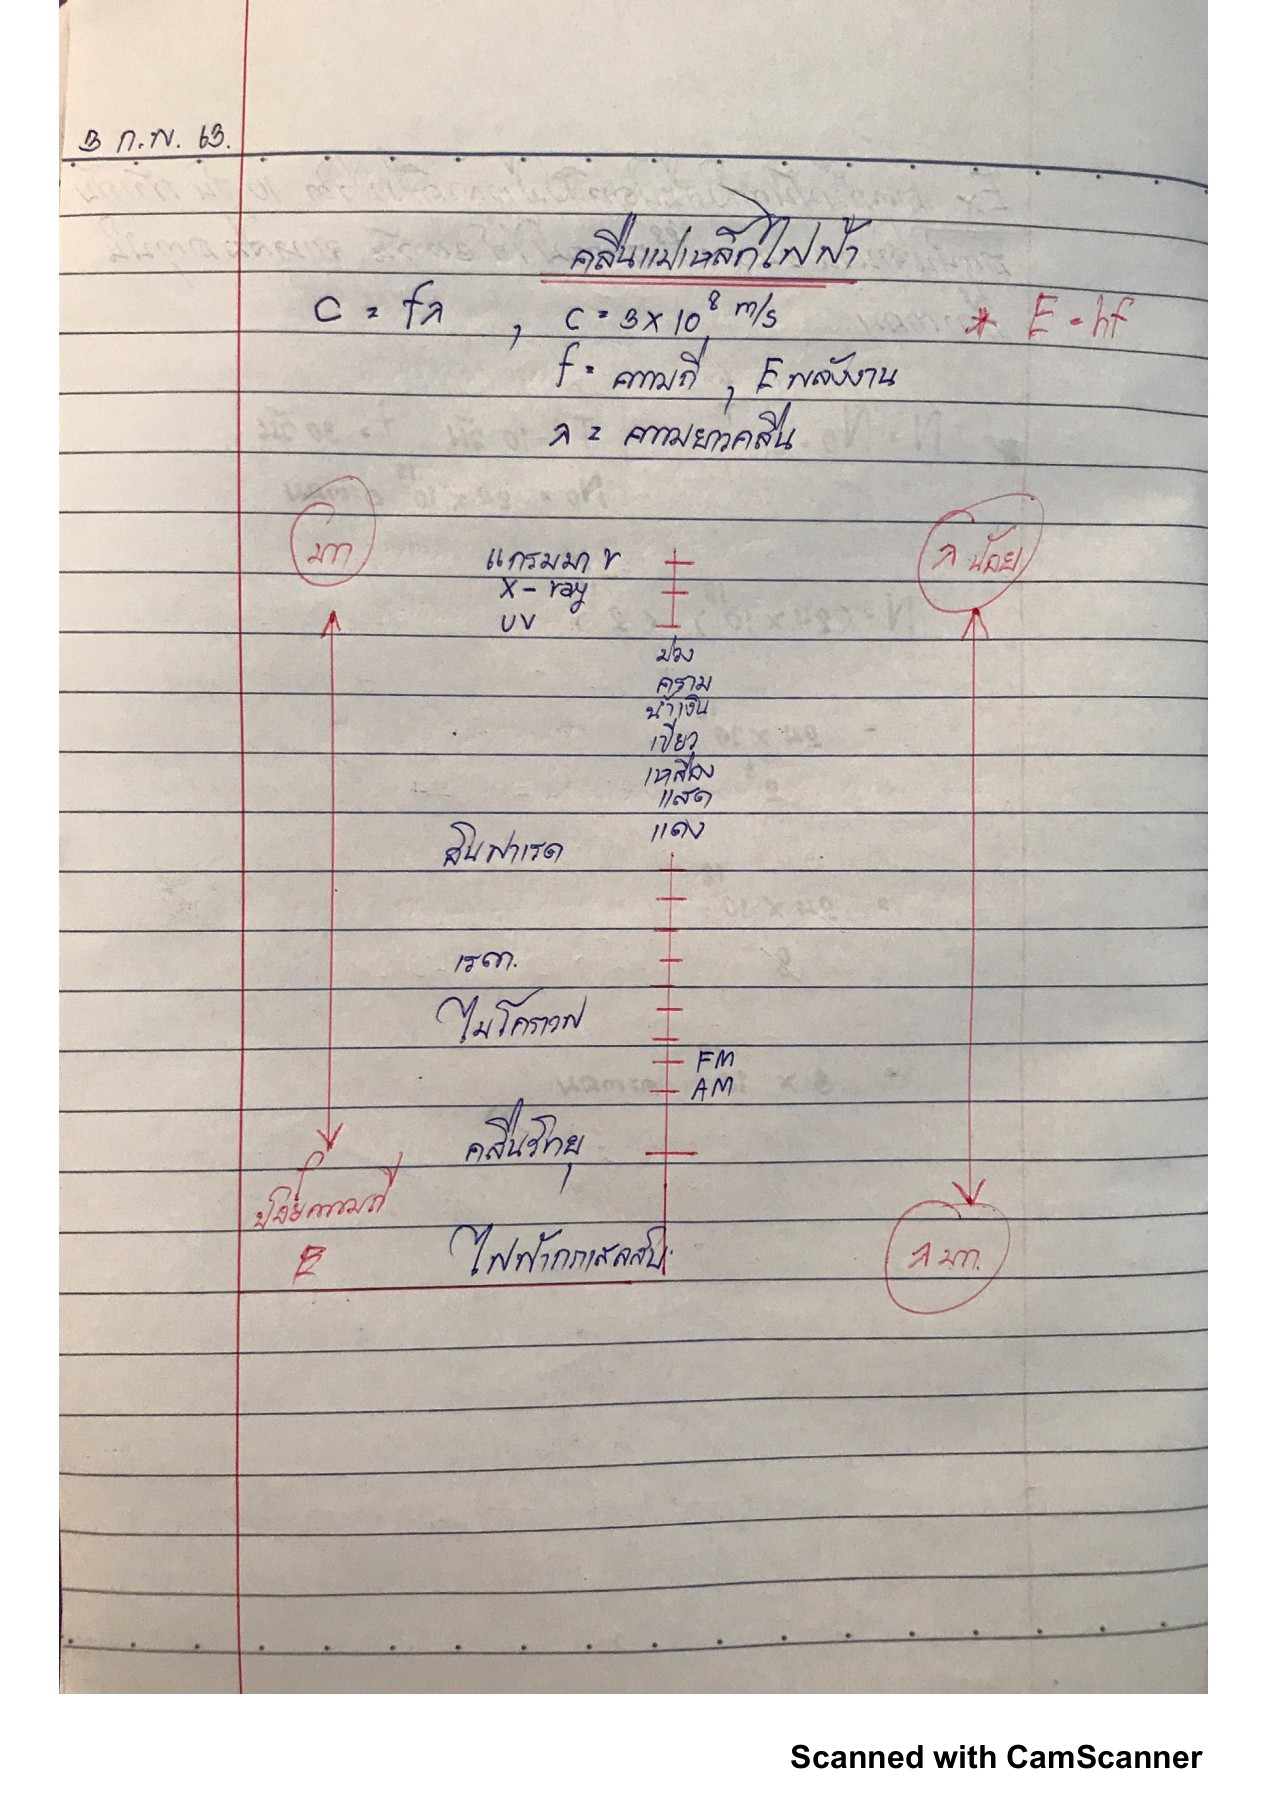 3 ก.พ. 63.
คลื่นแม่เหล็กไฟฟ้า
C = fλ , C = 3 × 10⁸ m/s * E = hf
f = ความถี่ , E พลังงาน
λ = ความยาวคลื่น
มาก แกรมมา γ λ น้อย
X - ray
UV
ม่วง
คราม
น้ำเงิน
เขียว
เหลือง
แสด
แดง
อินฟาเรด
เรดา.
ไมโครเวฟ
FM
AM
คลื่นวิทยุ
น้อยความถี่
E ไฟฟ้ากระแสสลับ λ มาก.
Scanned with CamScanner